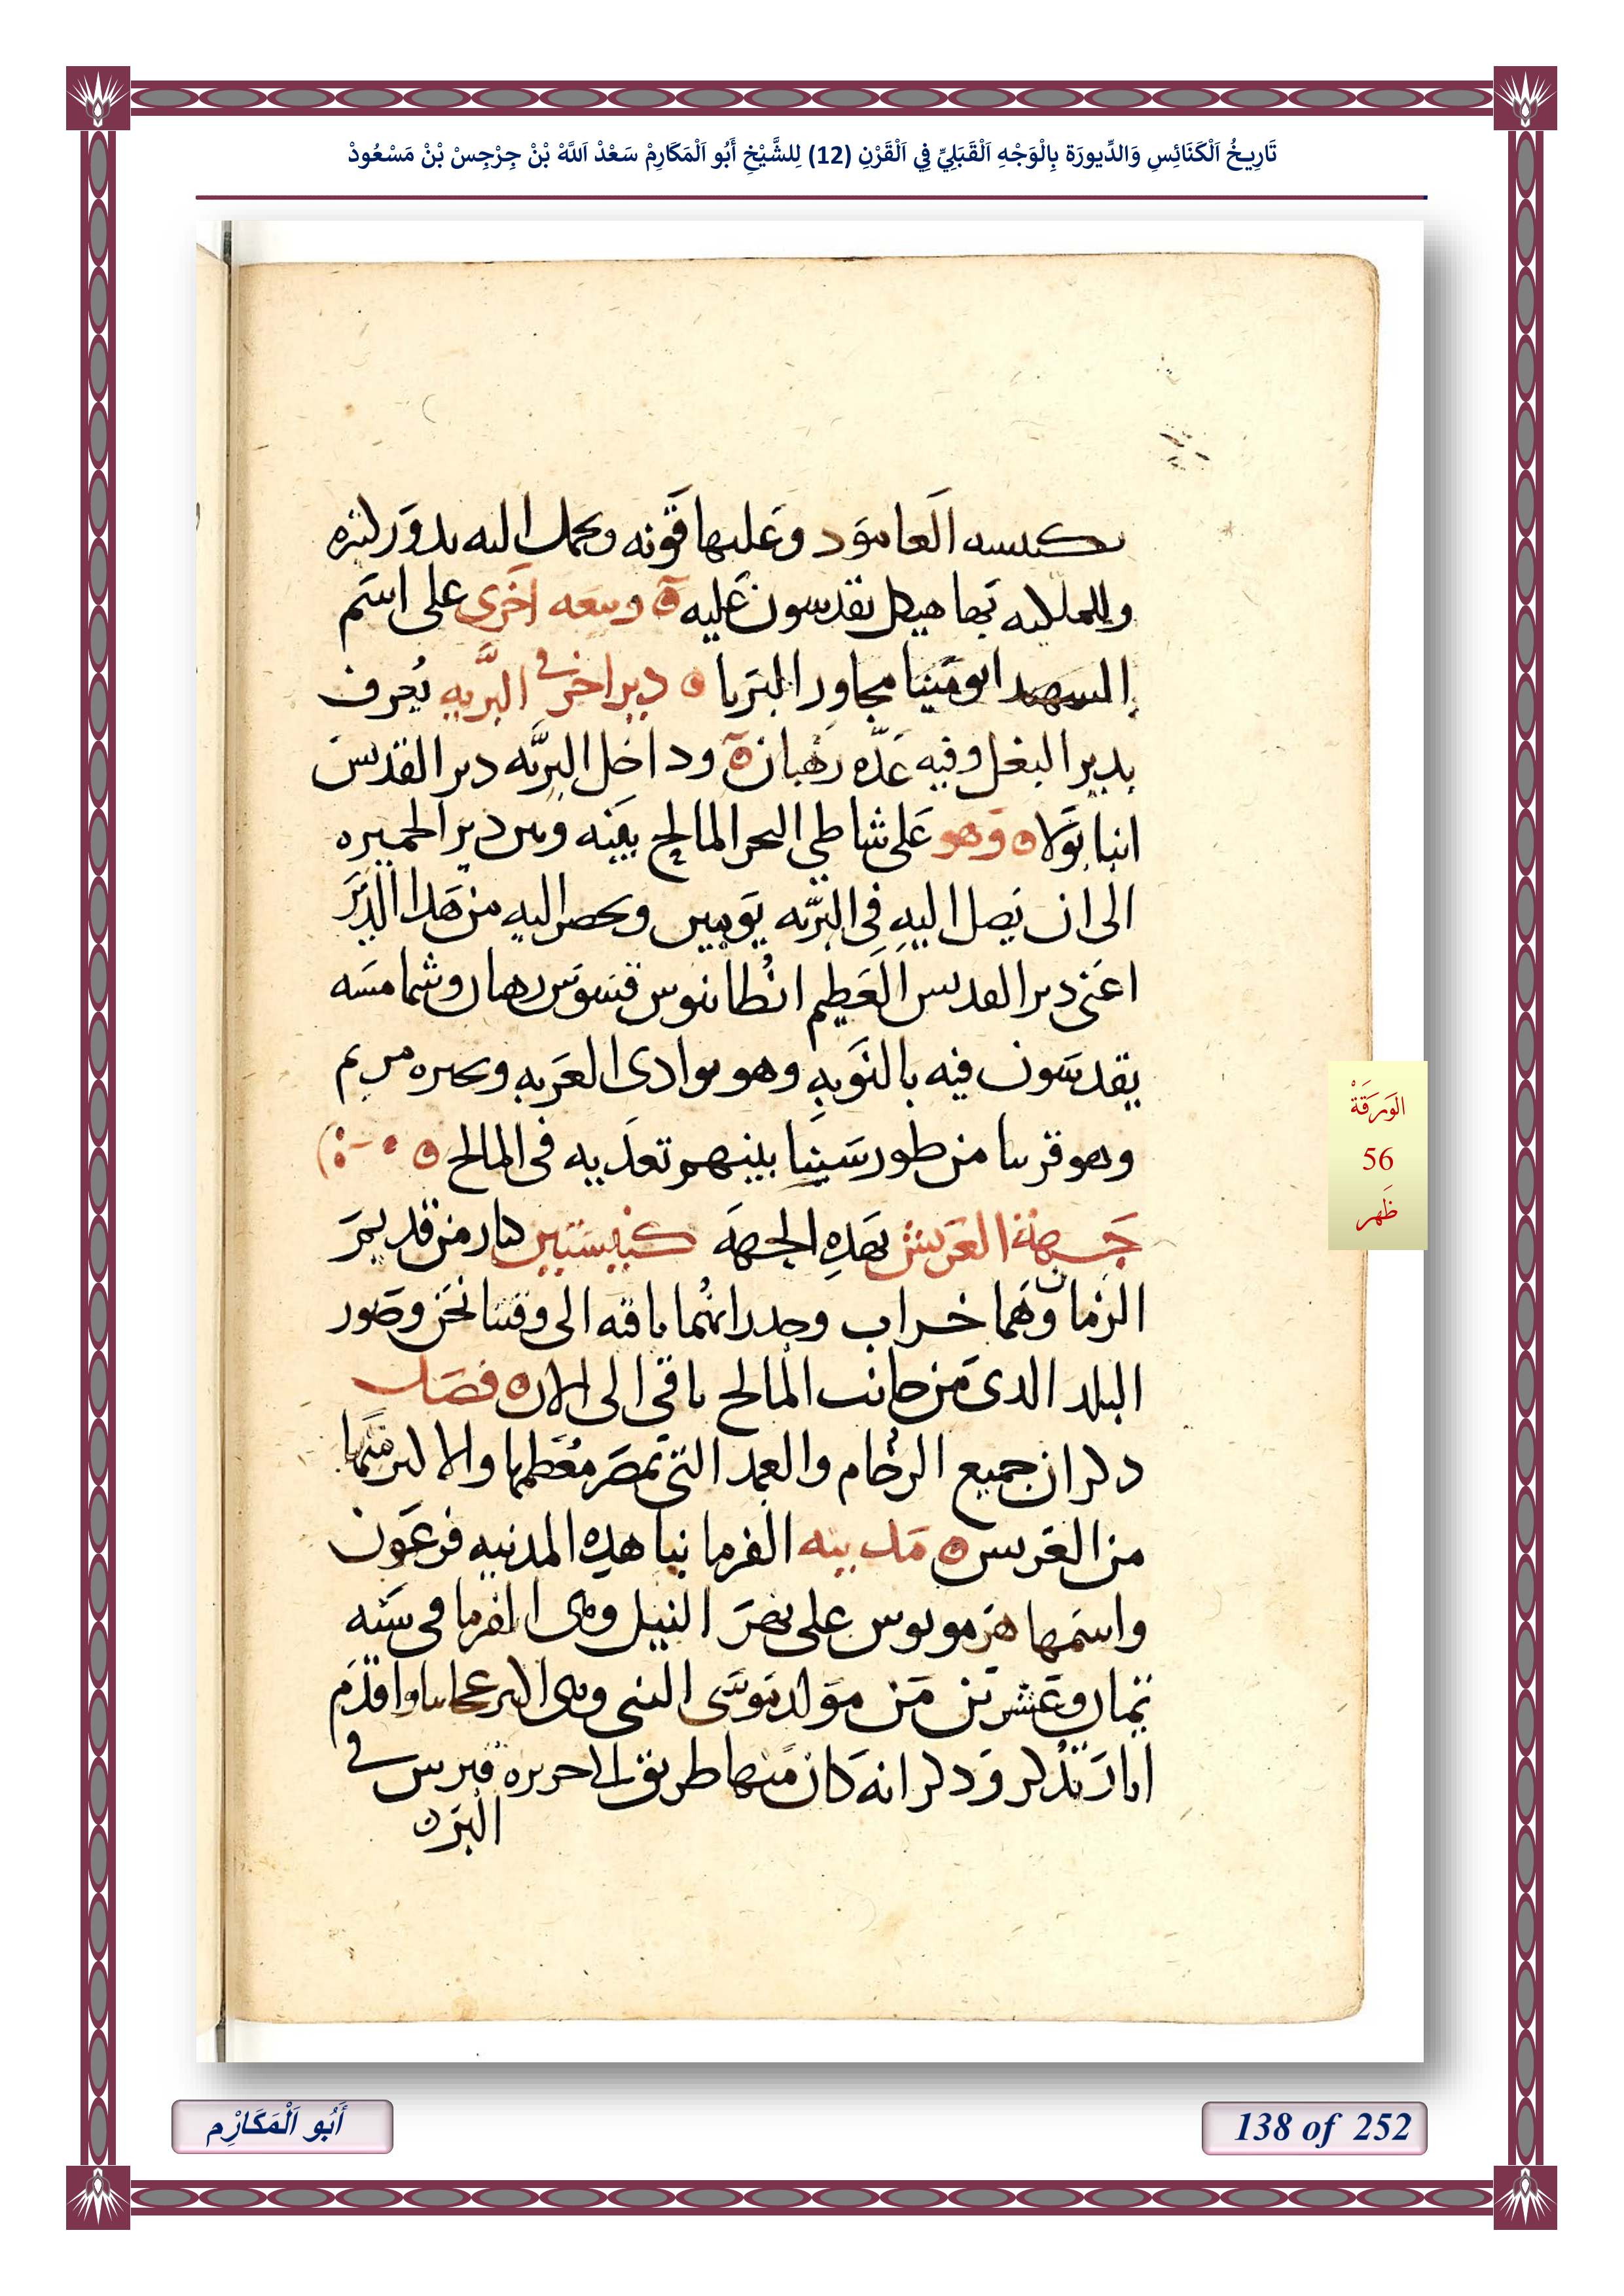 تَارِيخُ اَلْكَنَائِسِ وَالدِّيورَة بِالْوَجْهِ اَلْقَبَلِيِّ فِي اَلْقَرْنِ (12) لِلشَّيْخِ أَبُو اَلْمَكَارِمْ سَعْدْ اَللَّهْ بْنْ جِرْجِسْ بْنْ مَسْعُودْ
بكنيسه العامود وعليها قونه ويحمل اليه بدور لتره
وللملكيه بها هيكل يقدسون عليه وبيعه اخرى على اسم
الشهيد ابو مينا مجاور البربا دير اخر في البريه يعرف
بدير البغل وفيه عده رهبان وداخل البريه دير القديس
انبا بولا وهو على شاطي البحر المالح بينه وبين دير الجميزه
الى ان يصل اليه في البريه يوميين ويحضر اليه من هدا الدير
اعني دير القديس العظيم انطانيوس قسوس رهبان وشمامسه
يقدسون فيه بالنوبه وهو بوادى العربه وبحيره مريم
وهو قريبا من طور سينا بينهم تعديه في المالح
جهة العريش بهده الجهه كنيستين كبار من قديم
الزمان وهما خراب وجدرانهما باقيه الى وقتنا نحن وصور
البلد الدى من جانب المالح باقي الى الان فصل
دكر ان جميع الرخام والعمد التي بمصر معظمها والاكتر منها
من العريس مدينه الفرما بنا هده المدينه فرعون
واسمها هرمويوس على نهر النيل وهى الفرما في سنه
ثمان وعشرين من مولد موسى النبي وهى اكبر عجايبا واقدم
اثار تذكر ودكر انه كان منها طريق الى جزيره قبرس في
البر
الوَرَقَةْ
56
ظَهر
أَبُو اَلْمَكَارِْم
138 of 252